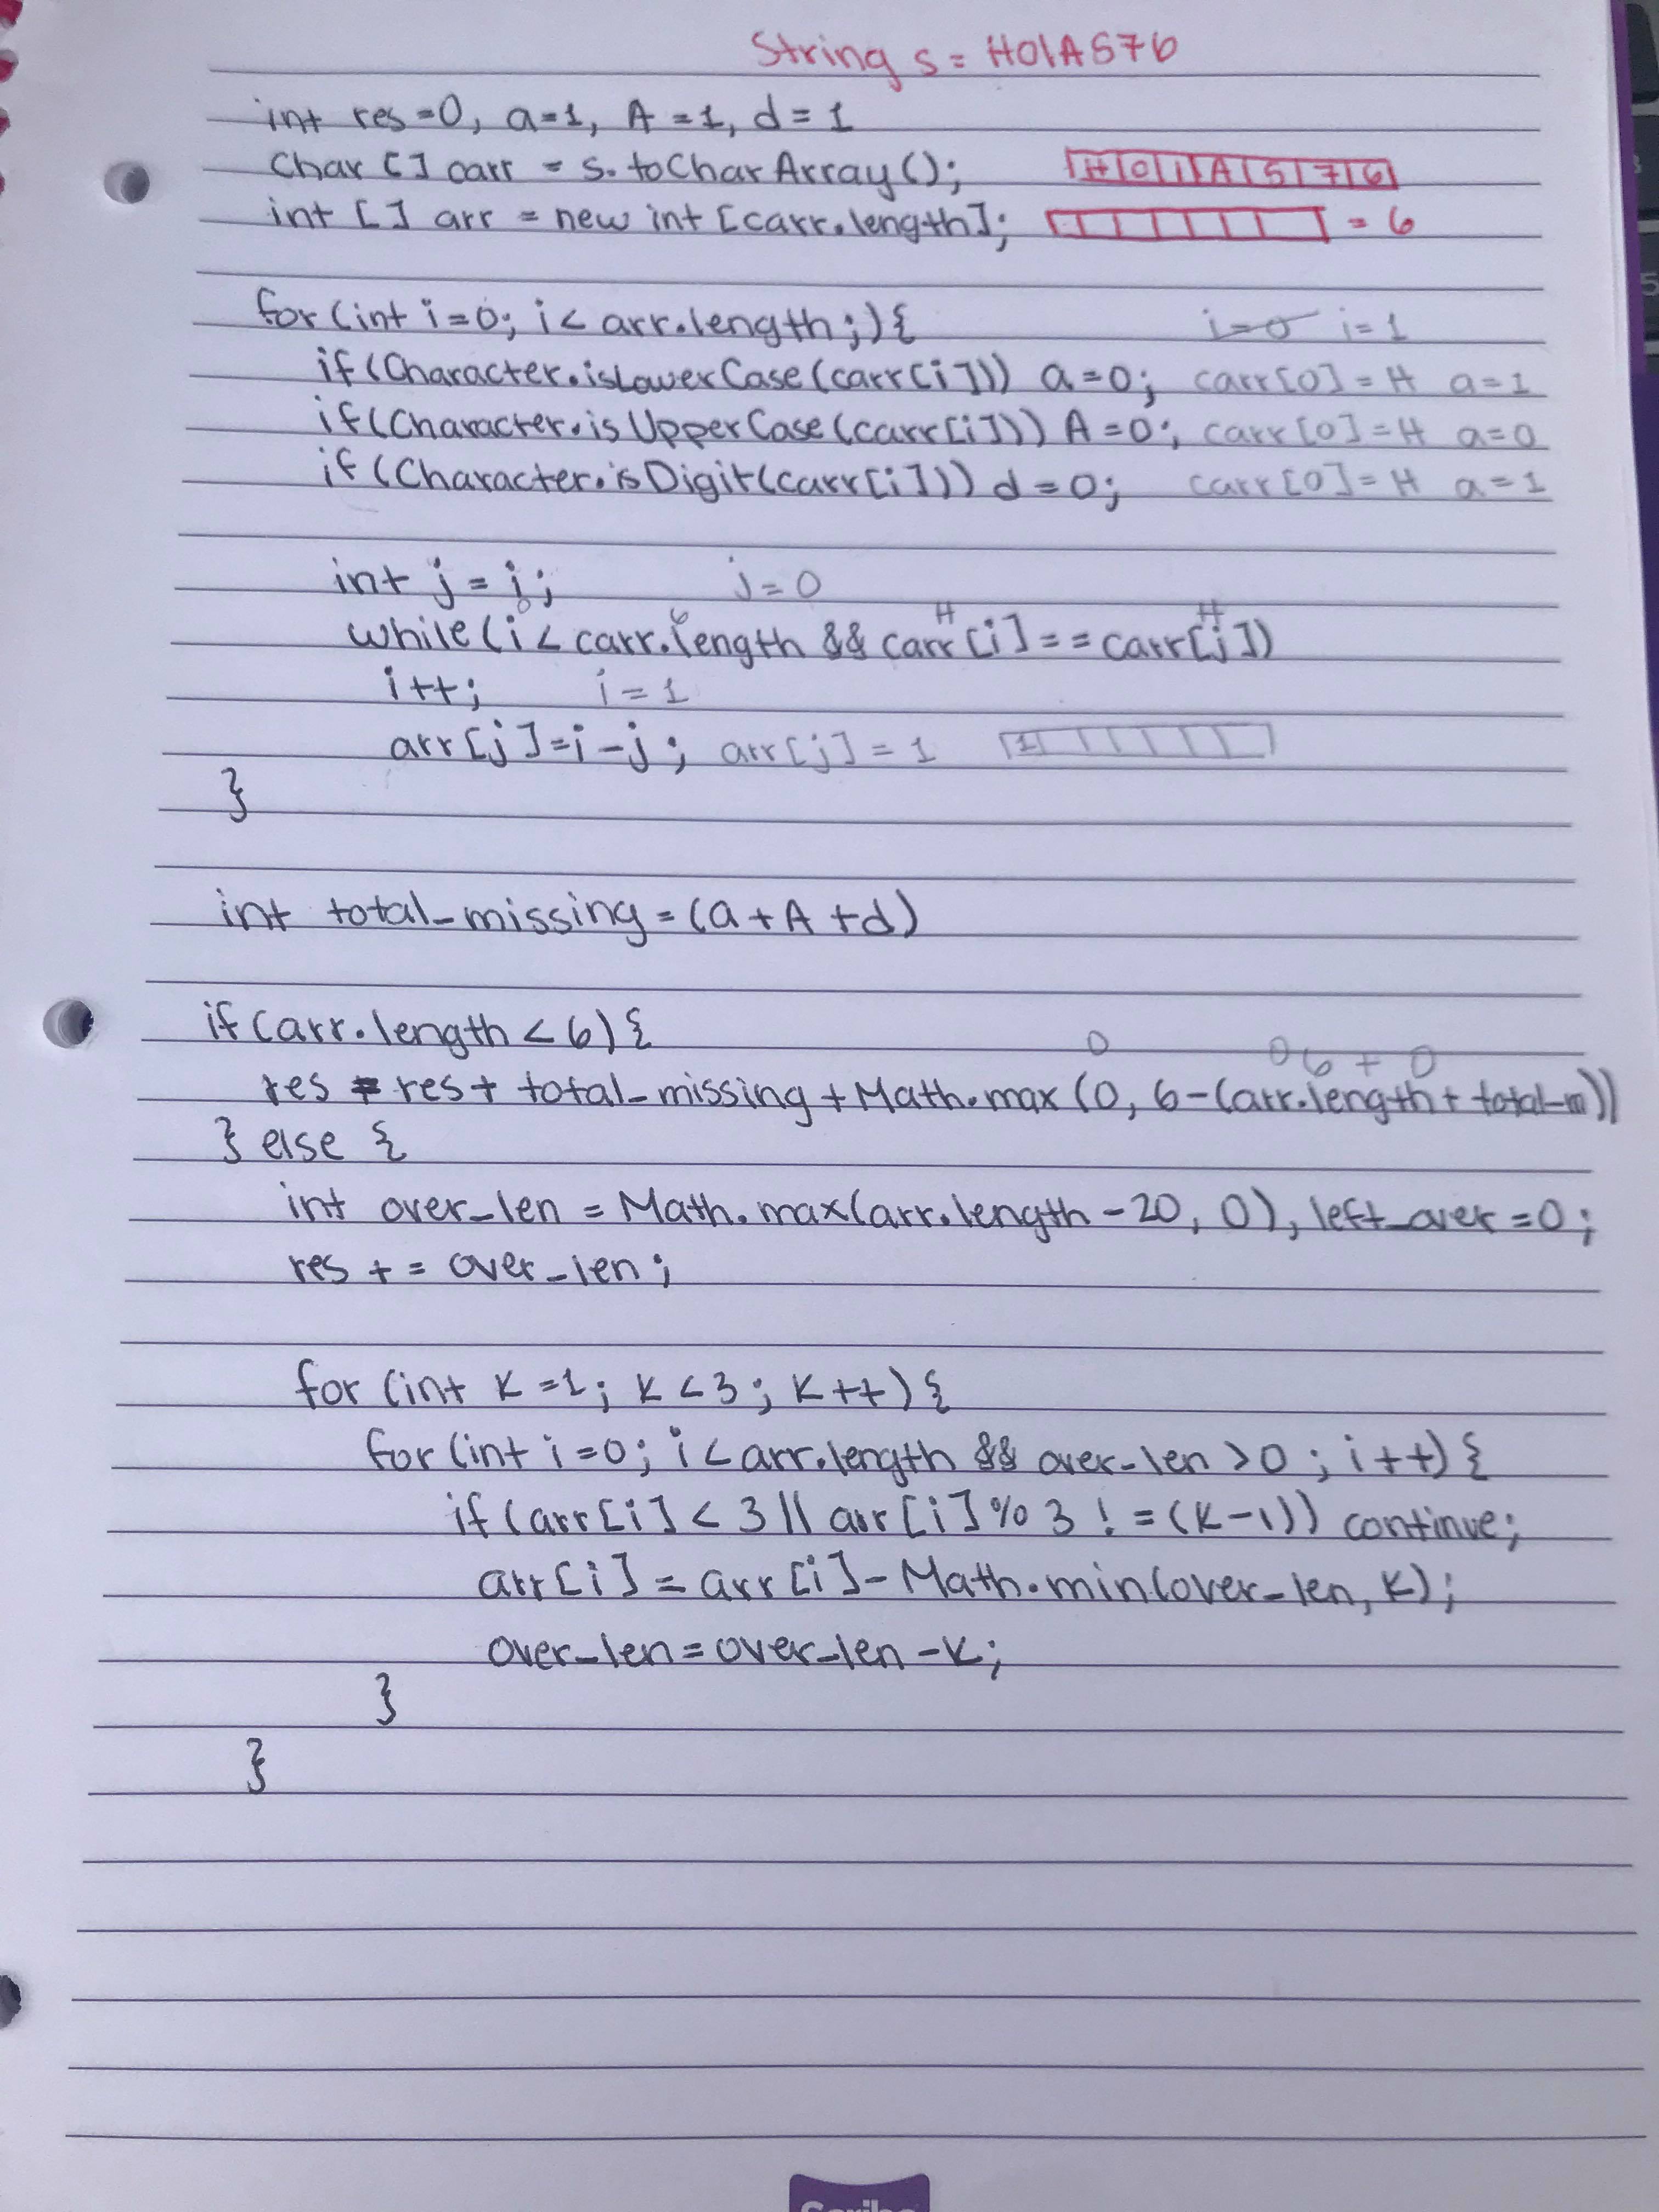 String s = HOlA576
int res=0, a=1, A=1, d=1
Char [] carr = s.toCharArray(); |H|O|l|A|5|7|6|
int [] arr = new int [carr.length]; = 6
for (int i=0; i< arr.length;){ i=0 i=1
if (Character.isLowerCase (carr[i])) a=0; carr[0]=H a=1
if (Character.isUpperCase (carr[i])) A=0; carr[0]=H a=0
if (Character.isDigit(carr[i])) d=0; carr[0]=H a=1
int j = i; j=0
0 6 H H
while (i < carr.length && carr[i]==carr[j])
i++; i=1
arr[j]=i-j; arr[j]=1 |1|
}
int total_missing=(a+A+d)
if (arr.length<6){
0 0 6 + 0
res = res+ total_missing + Math.max (0, 6-(arr.length+ total-m))
} else {
int over_len = Math.max(arr.length-20, 0), left_over=0;
res += over_len;
for (int K=1; K<3; K++){
for (int i=0; i<arr.length && over-len>0; i++){
if (arr[i]<3 || arr[i]%3 != (K-1)) continue;
arr[i]=arr[i]-Math.min(over-len, K);
over-len=over-len-K;
}
}